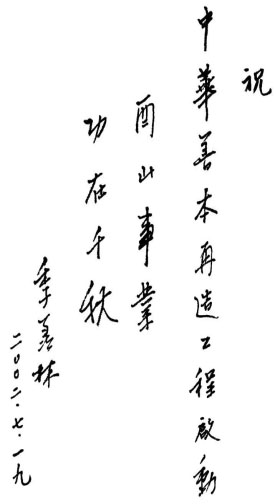 祝
中華善本再造工程啟動
酉山事業
功在千秋
季羡林
二〇〇二·七·一九